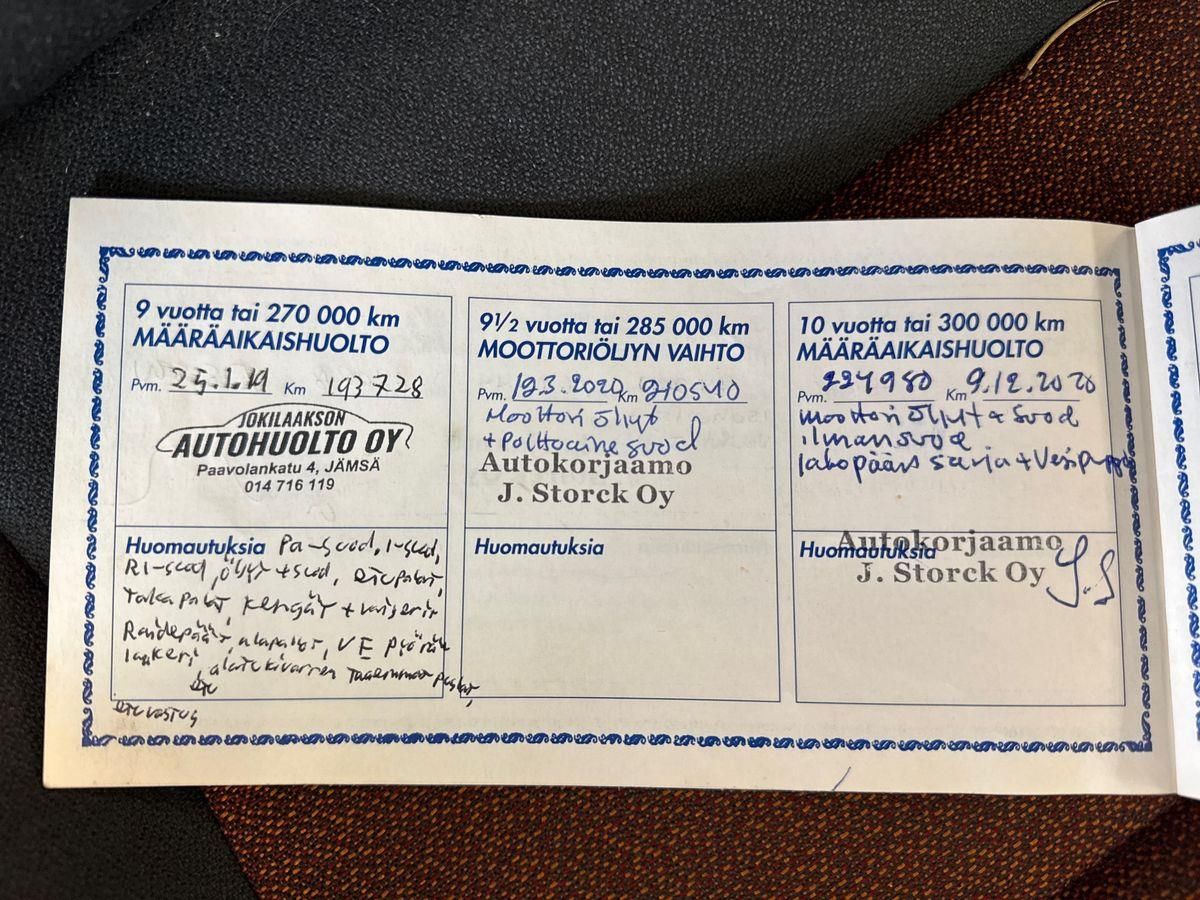 9 vuotta tai 270 000 km
MÄÄRÄAIKAISHUOLTO
Pvm. 25.1.19 Km 193728
JOKILAAKSON
AUTOHUOLTO OY
Paavolankatu 4, JÄMSÄ
014 716 119
Huomautuksia Pa-suod, I-suod,
RI-suod, öljyt + suod, etupalat,
Takapalat, kengät + vaijerit
Raidepäät, alapallot, VE pyörän
laakeri, alatukivarren taaemmat puslat,
etu
etuvastus
9½ vuotta tai 285 000 km
MOOTTORIÖLJYN VAIHTO
Pvm. 12.3.2020 Km 210540
Moottori öljyt
+ Polttoaine suod
Autokorjaamo
J. Storck Oy
Huomautuksia
10 vuotta tai 300 000 km
MÄÄRÄAIKAISHUOLTO
Pvm. 224980 Km 9.12.2020
moottori öljyt + suod
ilmansuod.
Jakopään sarja + Vesipumppu
Autokorjaamo
Huomautuksia
J. Storck Oy J.S